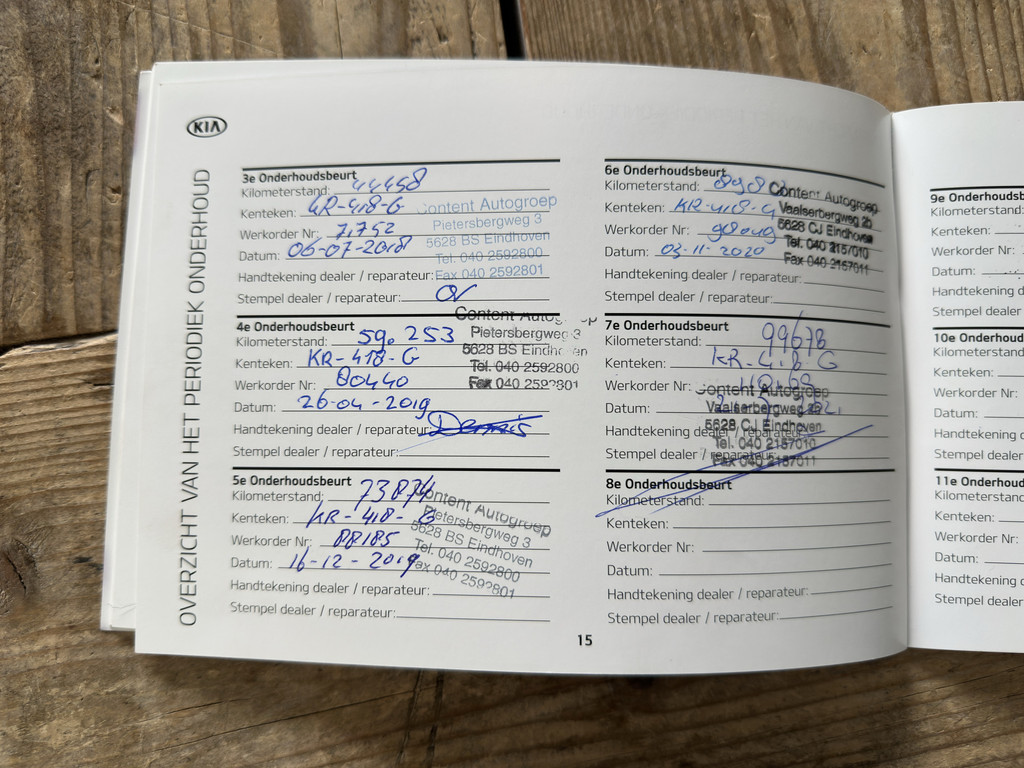 KIA
OVERZICHT VAN HET PERIODIEK ONDERHOUD
3e Onderhoudsbeurt
Kilometerstand: 44458
Kenteken: KR-418-G
Werkorder Nr: 71752
Datum: 06-07-2018
Handtekening dealer / reparateur:
Stempel dealer / reparateur:
Content Autogroep
Pietersbergweg 3
5628 BS Eindhoven
Tel. 040 2592800
Fax 040 2592801
4e Onderhoudsbeurt
Kilometerstand: 59.253
Kenteken: KR-418-G
Werkorder Nr: 80440
Datum: 26-04-2019
Handtekening dealer / reparateur: Dennis
Stempel dealer / reparateur:
Content Autogroep
Pietersbergweg 3
5628 BS Eindhoven
Tel. 040 2592800
Fax 040 2592801
5e Onderhoudsbeurt
Kilometerstand: 73874
Kenteken: KR-418-G
Werkorder Nr: 88185
Datum: 16-12-2019
Handtekening dealer / reparateur:
Stempel dealer / reparateur:
Content Autogroep
Pietersbergweg 3
5628 BS Eindhoven
Tel. 040 2592800
Fax 040 2592801
6e Onderhoudsbeurt
Kilometerstand:
Kenteken: KR-418-G
Werkorder Nr:
Datum: 03-11-2020
Handtekening dealer / reparateur:
Stempel dealer / reparateur:
Content Autogroep
Vaalserbergweg 2b
5628 CJ Eindhoven
Tel. 040 2157010
Fax 040 2157011
7e Onderhoudsbeurt
Kilometerstand: 99678
Kenteken: KR-418-G
Werkorder Nr:
Datum:
Handtekening dealer / reparateur:
Stempel dealer / reparateur:
Content Autogroep
Vaalserbergweg 2b
5628 CJ Eindhoven
Tel. 040 2157010
Fax 040 2157011
8e Onderhoudsbeurt
Kilometerstand:
Kenteken:
Werkorder Nr:
Datum:
Handtekening dealer / reparateur:
Stempel dealer / reparateur:
15
9e Onderhoud
Kilometerstand:
Kenteken:
Werkorder Nr:
Datum:
Handtekening
Stempel dealer
10e Onderhoud
Kilometerstand
Kenteken:
Werkorder Nr:
Datum:
Handtekening
Stempel dealer
11e Onderhoud
Kilometerstand
Kenteken:
Werkorder Nr:
Datum:
Handtekening
Stempel dealer